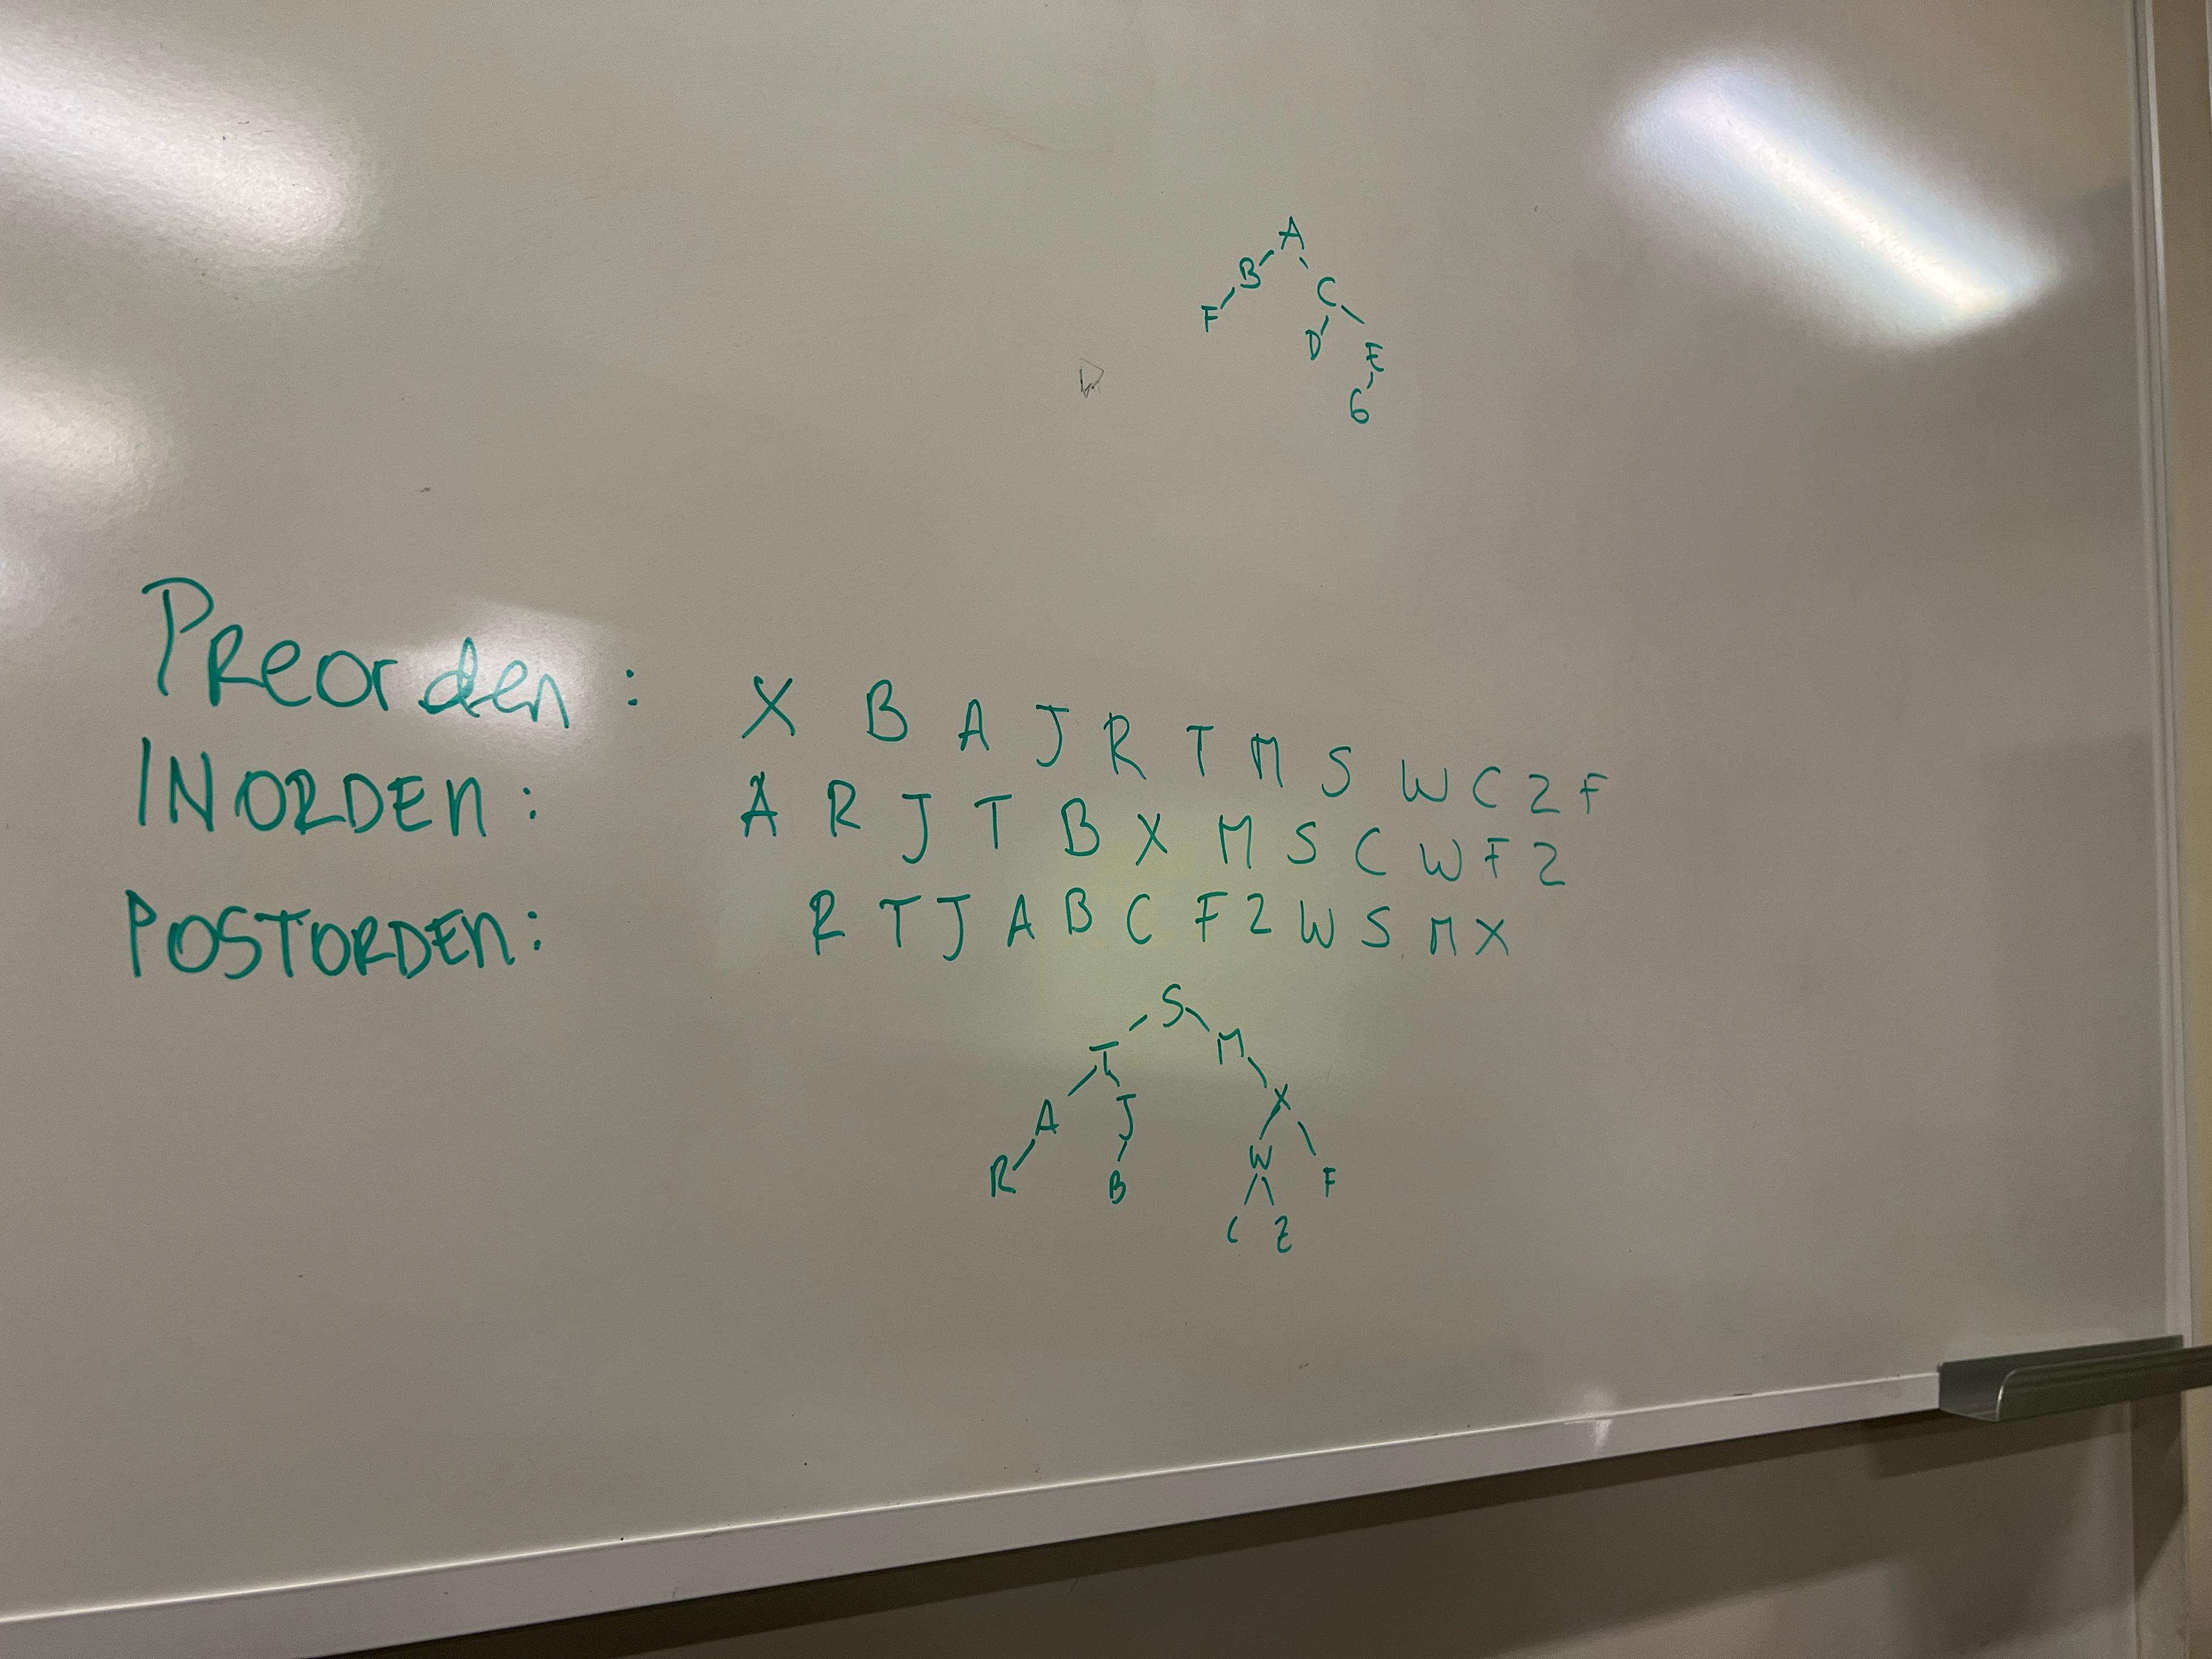 A
B C
F D E
6
Preorden: X B A J R T M S W C Z F
INORDEN: A R J T B X M S C W F Z
POSTORDEN: R T J A B C F Z W S M X
S
T M
A J X
R B W F
C Z